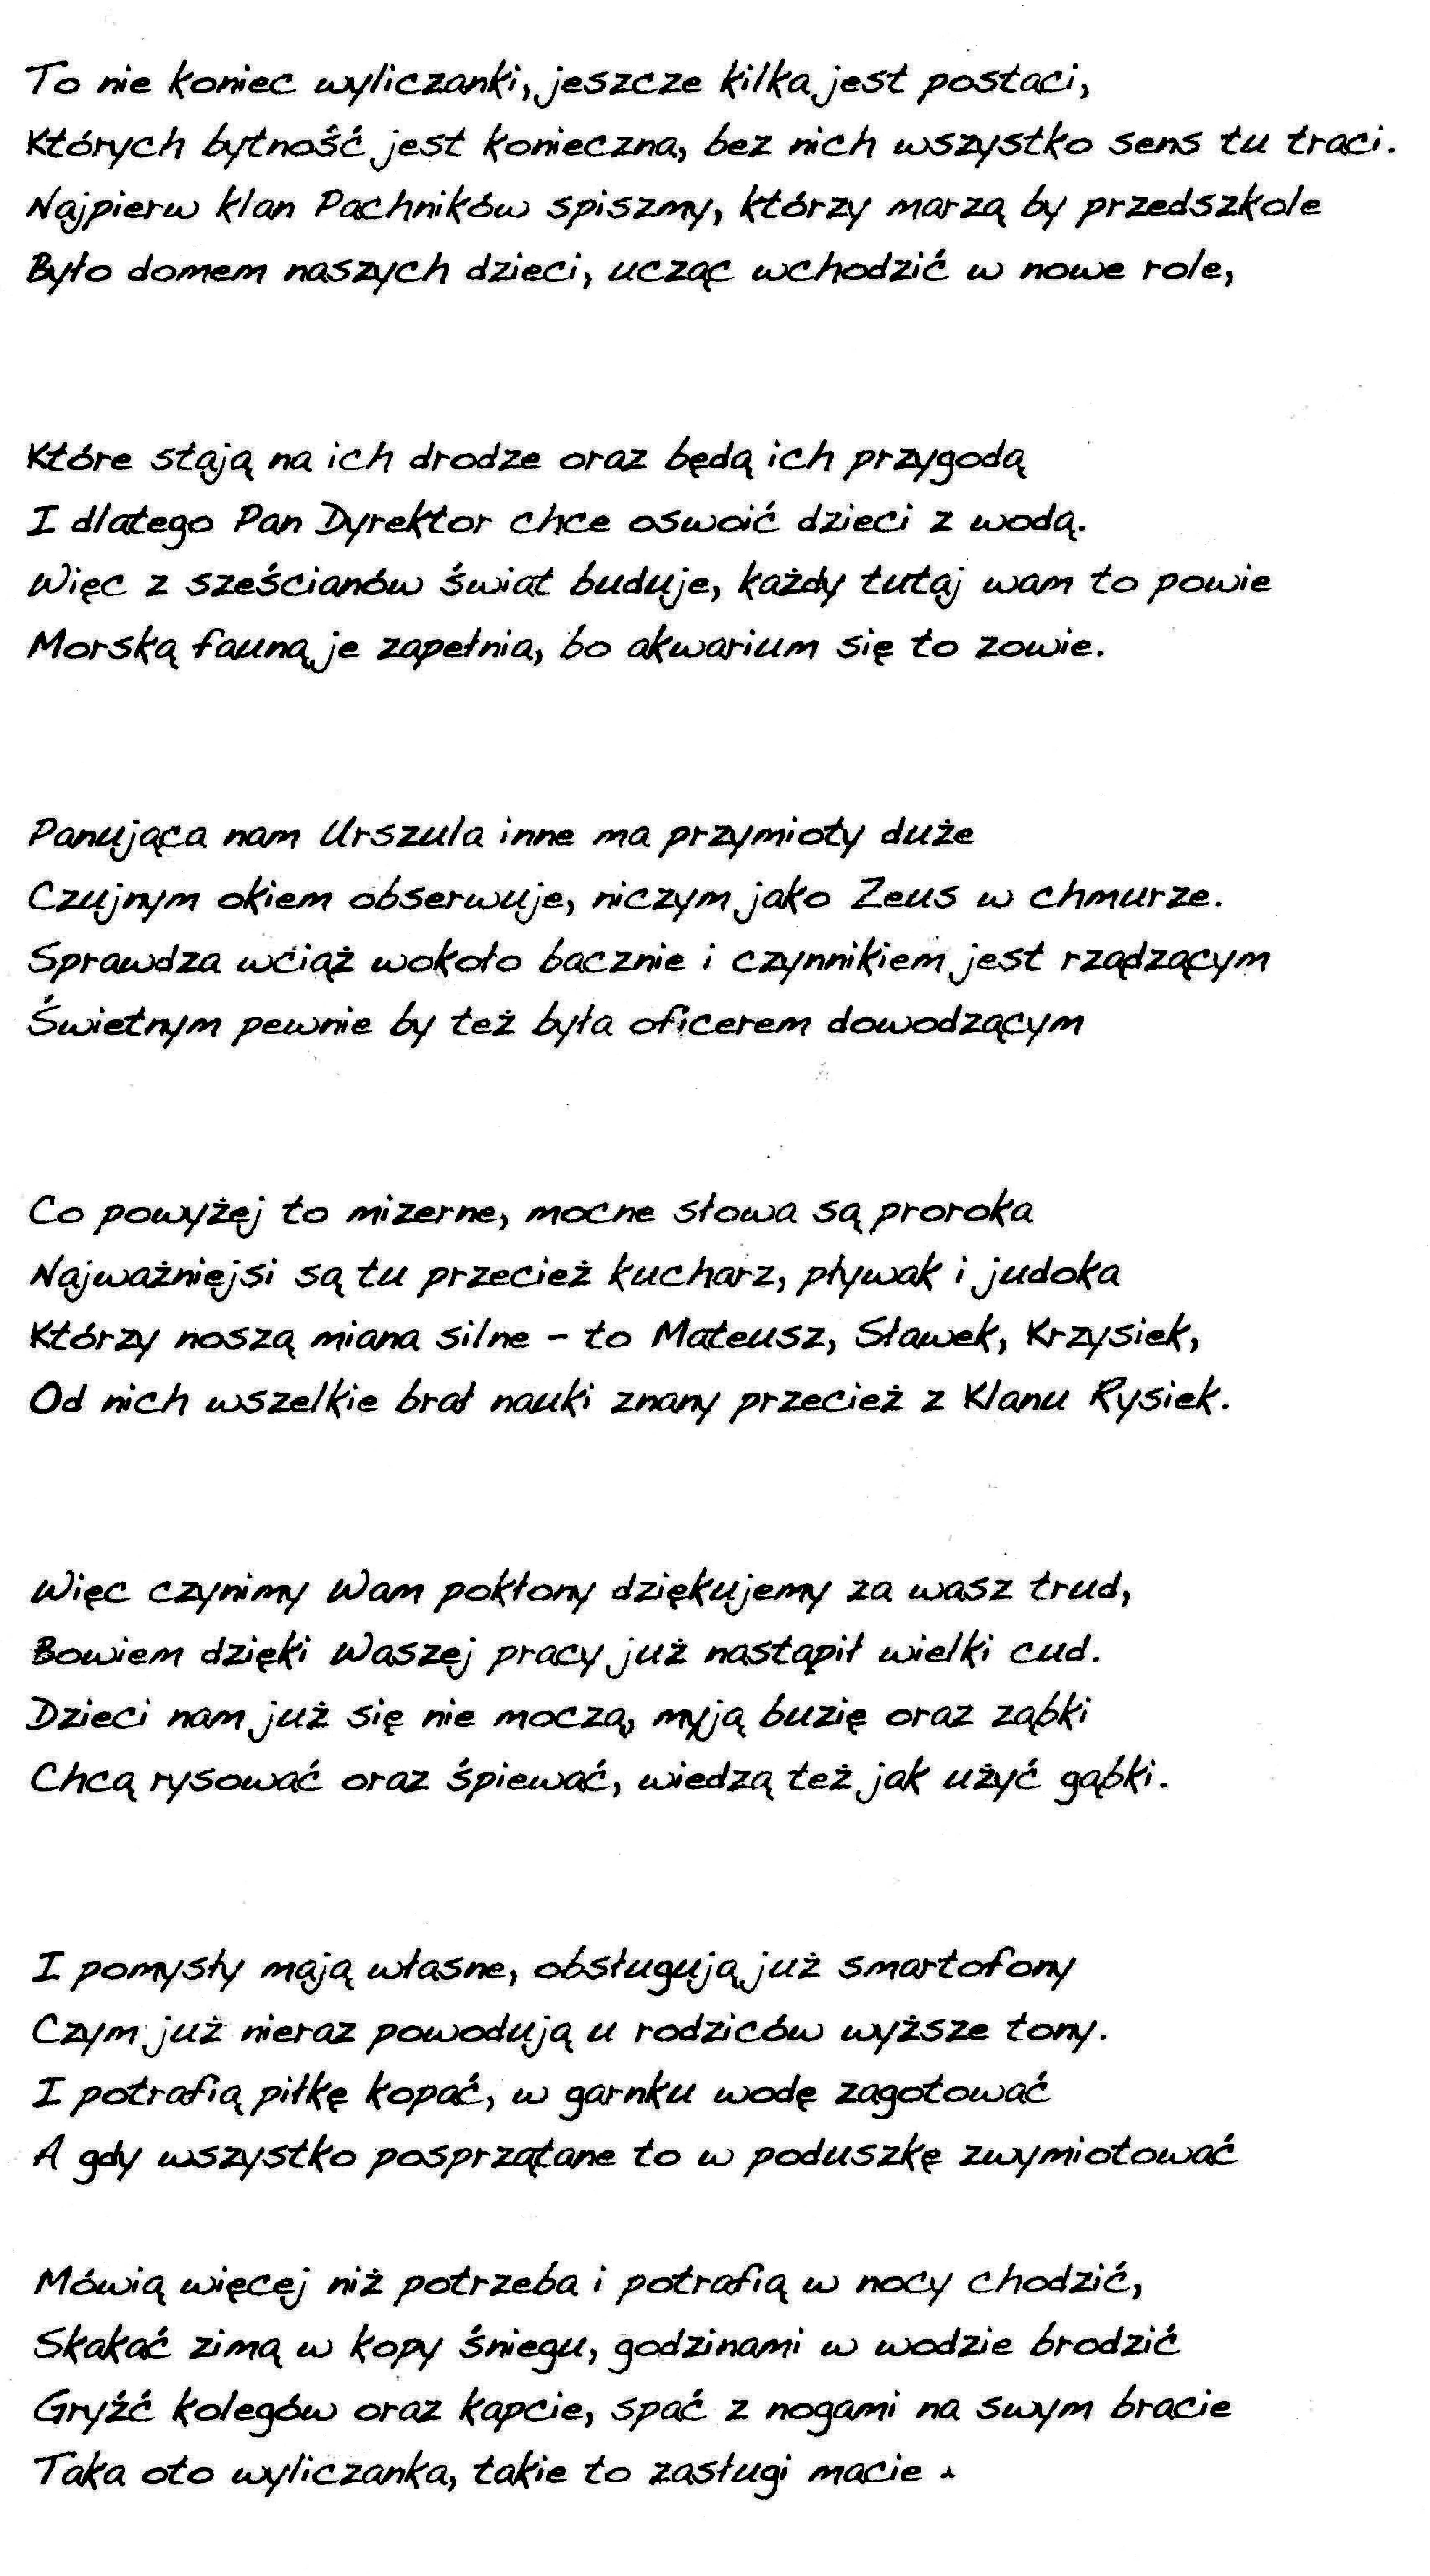 To nie koniec wyliczanki, jeszcze kilka jest postaci,
Których bytność jest konieczna, bez nich wszystko sens tu traci.
Najpierw klan Pachników spiszmy, którzy marzą by przedszkole
Było domem naszych dzieci, ucząc wchodzić w nowe role,
Które stają na ich drodze oraz będą ich przygodą
I dlatego Pan Dyrektor chce oswoić dzieci z wodą.
Więc z sześcianów świat buduje, każdy tutaj wam to powie
Morską fauną je zapełnia, bo akwarium się to zowie.
Panująca nam Urszula inne ma przymioty duże
Czujnym okiem obserwuje, niczym jako Zeus w chmurze.
Sprawdza wciąż wokoło bacznie i czynnikiem jest rządzącym
Świetnym pewnie by też była oficerem dowodzącym
Co powyżej to mizerne, mocne słowa są proroka
Najważniejsi są tu przecież kucharz, pływak i judoka
Którzy noszą miana silne - to Mateusz, Sławek, Krzysiek,
Od nich wszelkie brał nauki znany przecież z Klanu Rysiek.
Więc czynimy Wam pokłony dziękujemy za wasz trud,
Bowiem dzięki Waszej pracy już nastąpił wielki cud.
Dzieci nam już się nie moczą, myją buzię oraz ząbki
Chcą rysować oraz śpiewać, wiedzą też jak użyć gąbki.
I pomysły mają własne, obsługują już smartofony
Czym już nieraz powodują u rodziców wyższe tony.
I potrafią piłkę kopać, w garnku wodę zagotować
A gdy wszystko posprzątane to w poduszkę zwymiotować
Mówią więcej niż potrzeba i potrafią w nocy chodzić,
Skakać zimą w kopy śniegu, godzinami w wodzie brodzić
Gryźć kolegów oraz kapcie, spać z nogami na swym bracie
Taka oto wyliczanka, takie to zasługi macie.